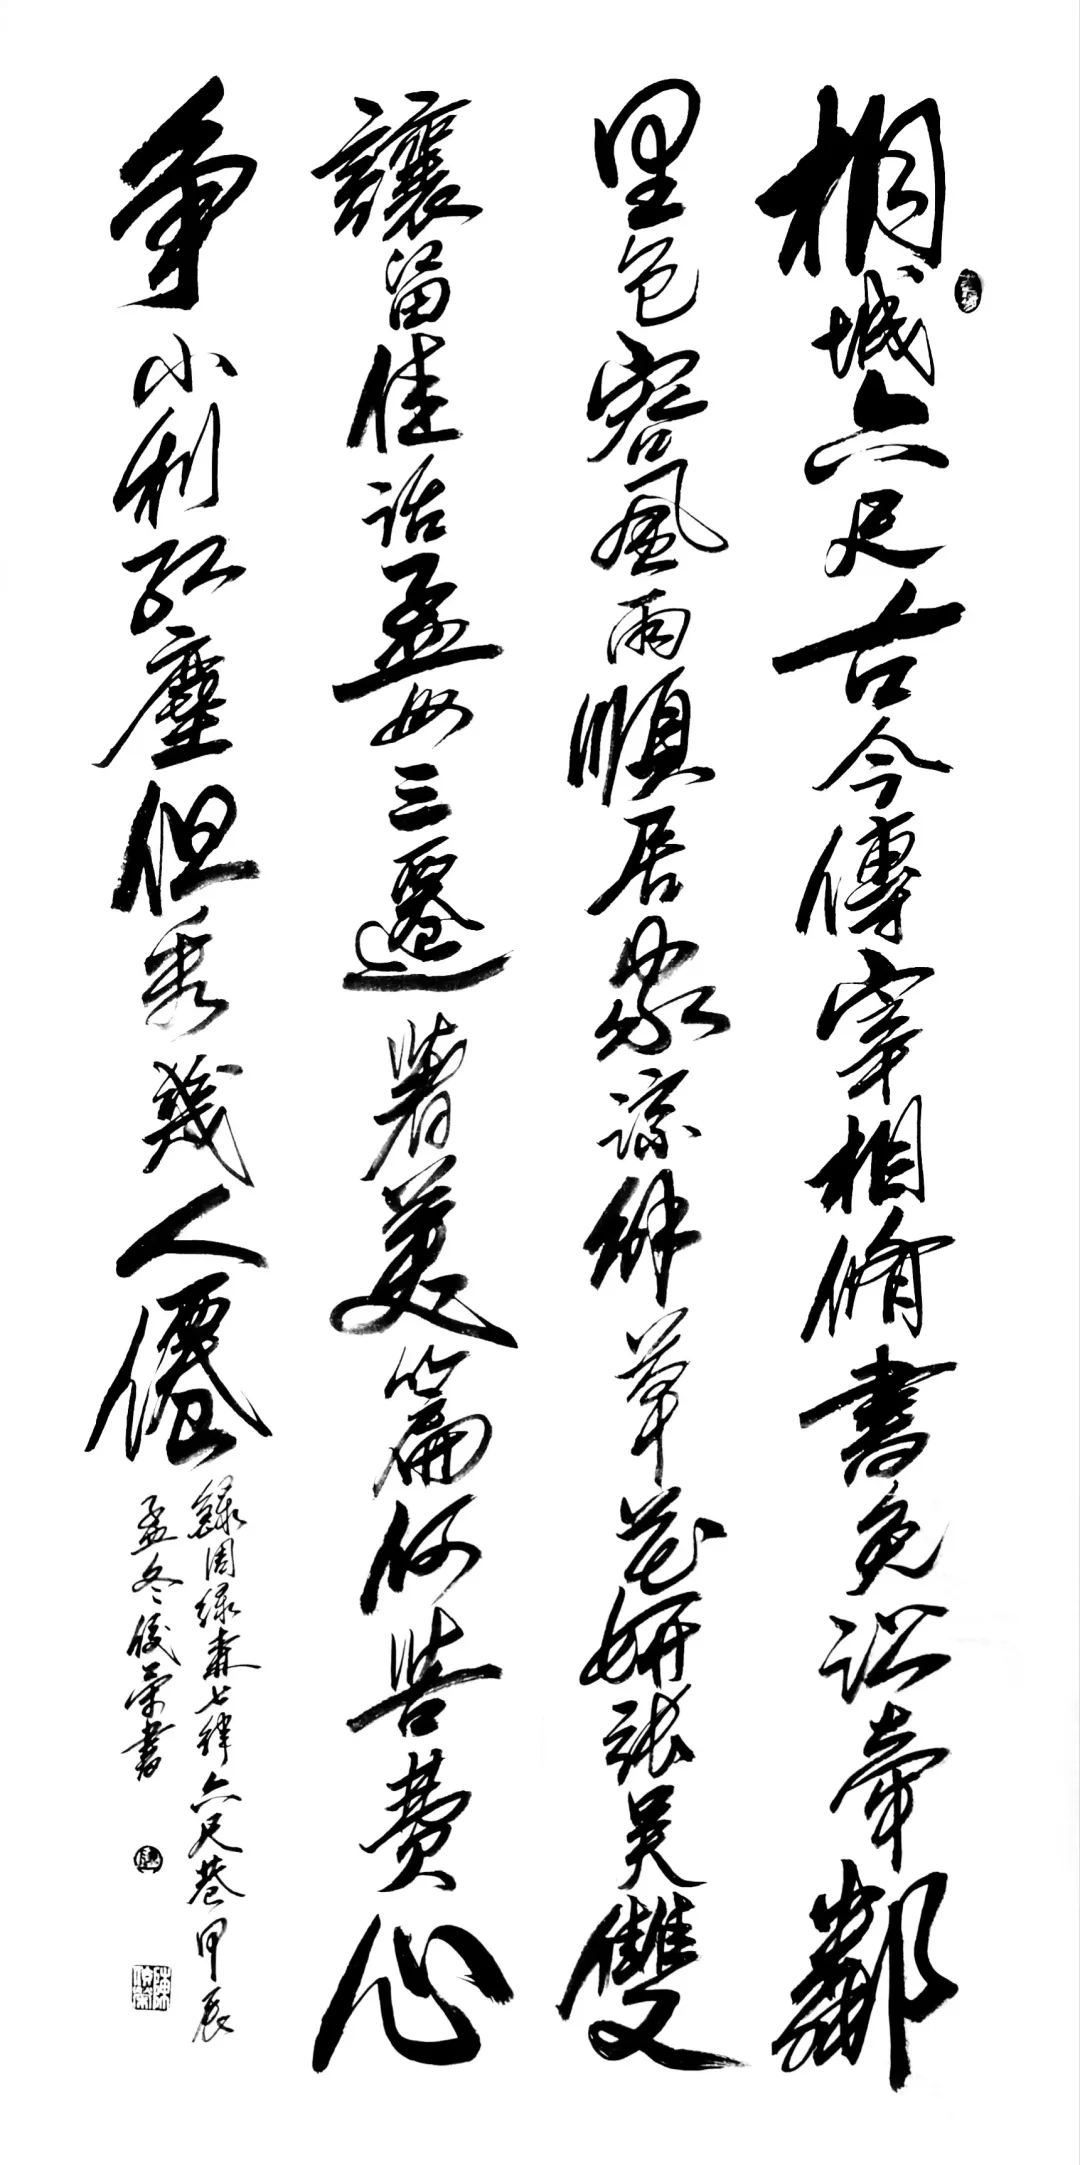 桐城六尺古今傳宰相脩書免訟牽鄰
里包容風雨順居家諒解草花妍張吳雙
讓留佳話孟母三遷著美篇何苦費心
爭小利紅塵但幾人僊
錄周緑森七律六尺巷甲辰
孟冬俊榮書
陳俊榮